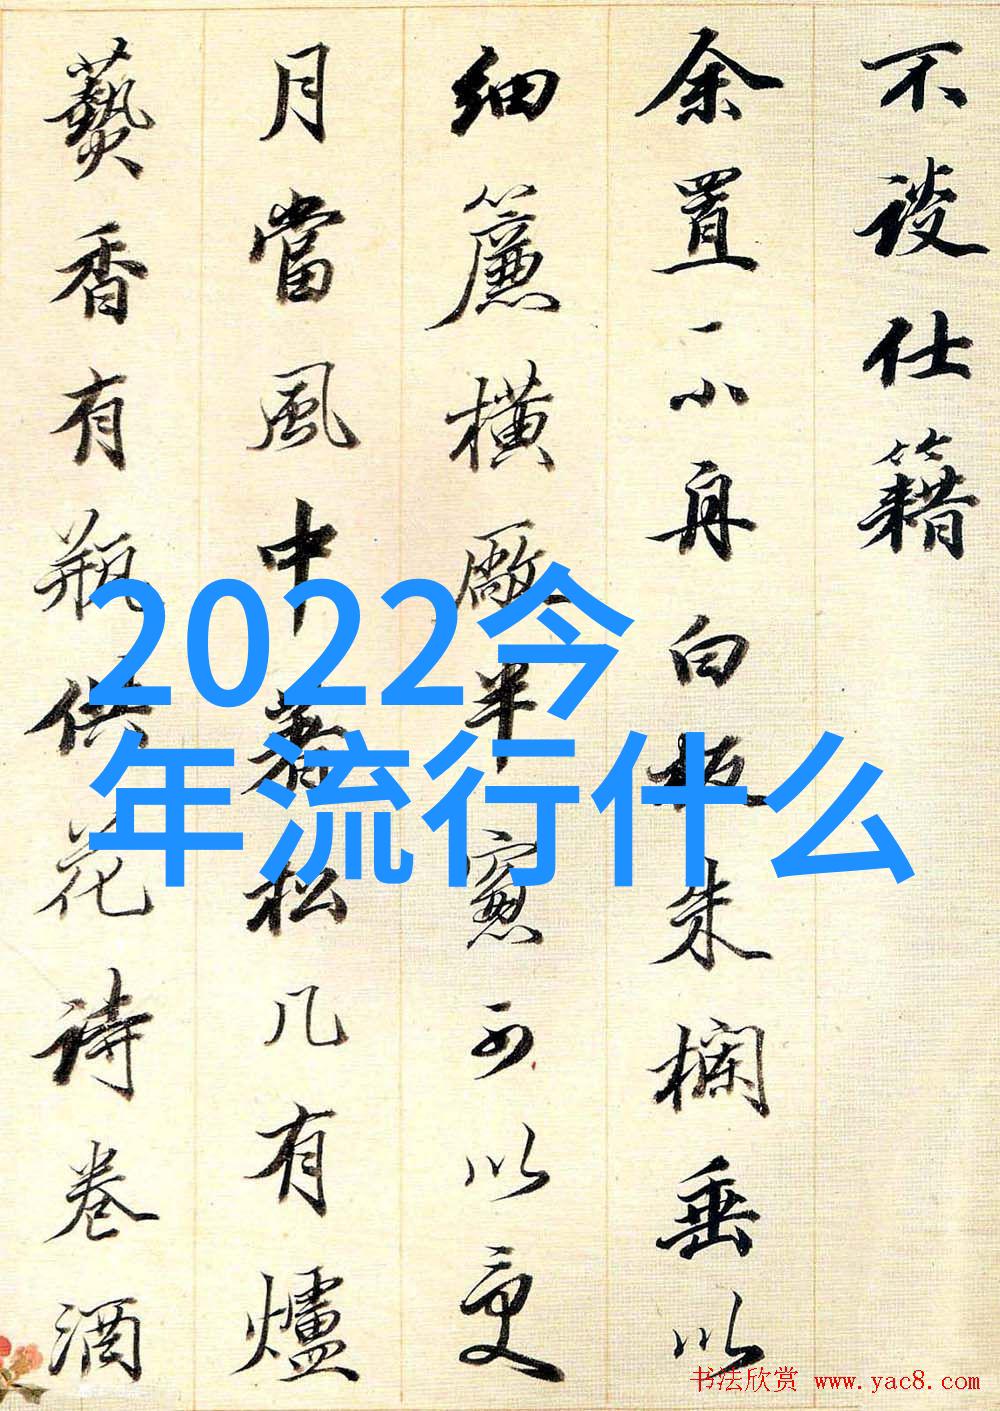 不談仕籍
余置一小舟白板朱欄垂以
細簾橫廠半窗可以更
月當風中着松几有爐
爇香有瓶供花詩卷酒
2022今
年流行什么
书法欣赏 www.yac8.com